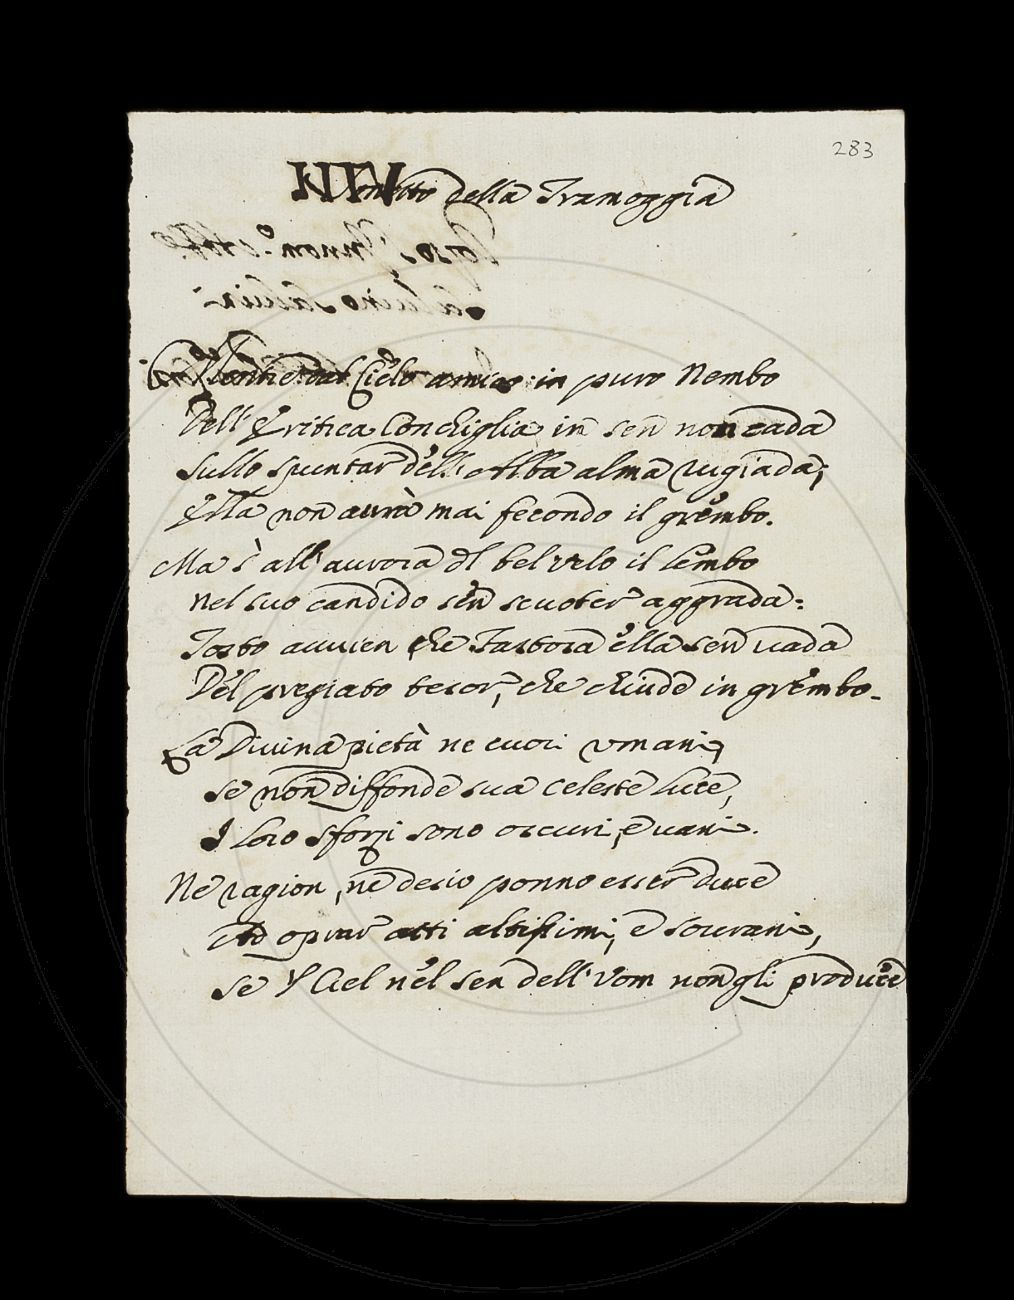 283
Sonetto della Tramoggia
dal Cielo amico in puro Nembo
Dell'Eritrea Conchiglia in sen non cada
Sullo spuntar dell'Alba alma rugiada;
Ella non avrà mai fecondo il grembo.
Ma s'all'aurora dl bel velo il lembo
Nel suo candido sen scuoter aggrada:
Tosto avvien che Tastosa ella sen vada
Del pregiato tesor, che chiude in grembo.
La Divina pietà ne cuori umani,
se non diffonde sua celeste luce,
I loro sforzi sono oscuri, e vani.
Ne ragion, ne desio ponno esser duce
Ad oprar atti altissimi, e sovrani,
se 'l Ciel nel sen dell'Uom non gli produce